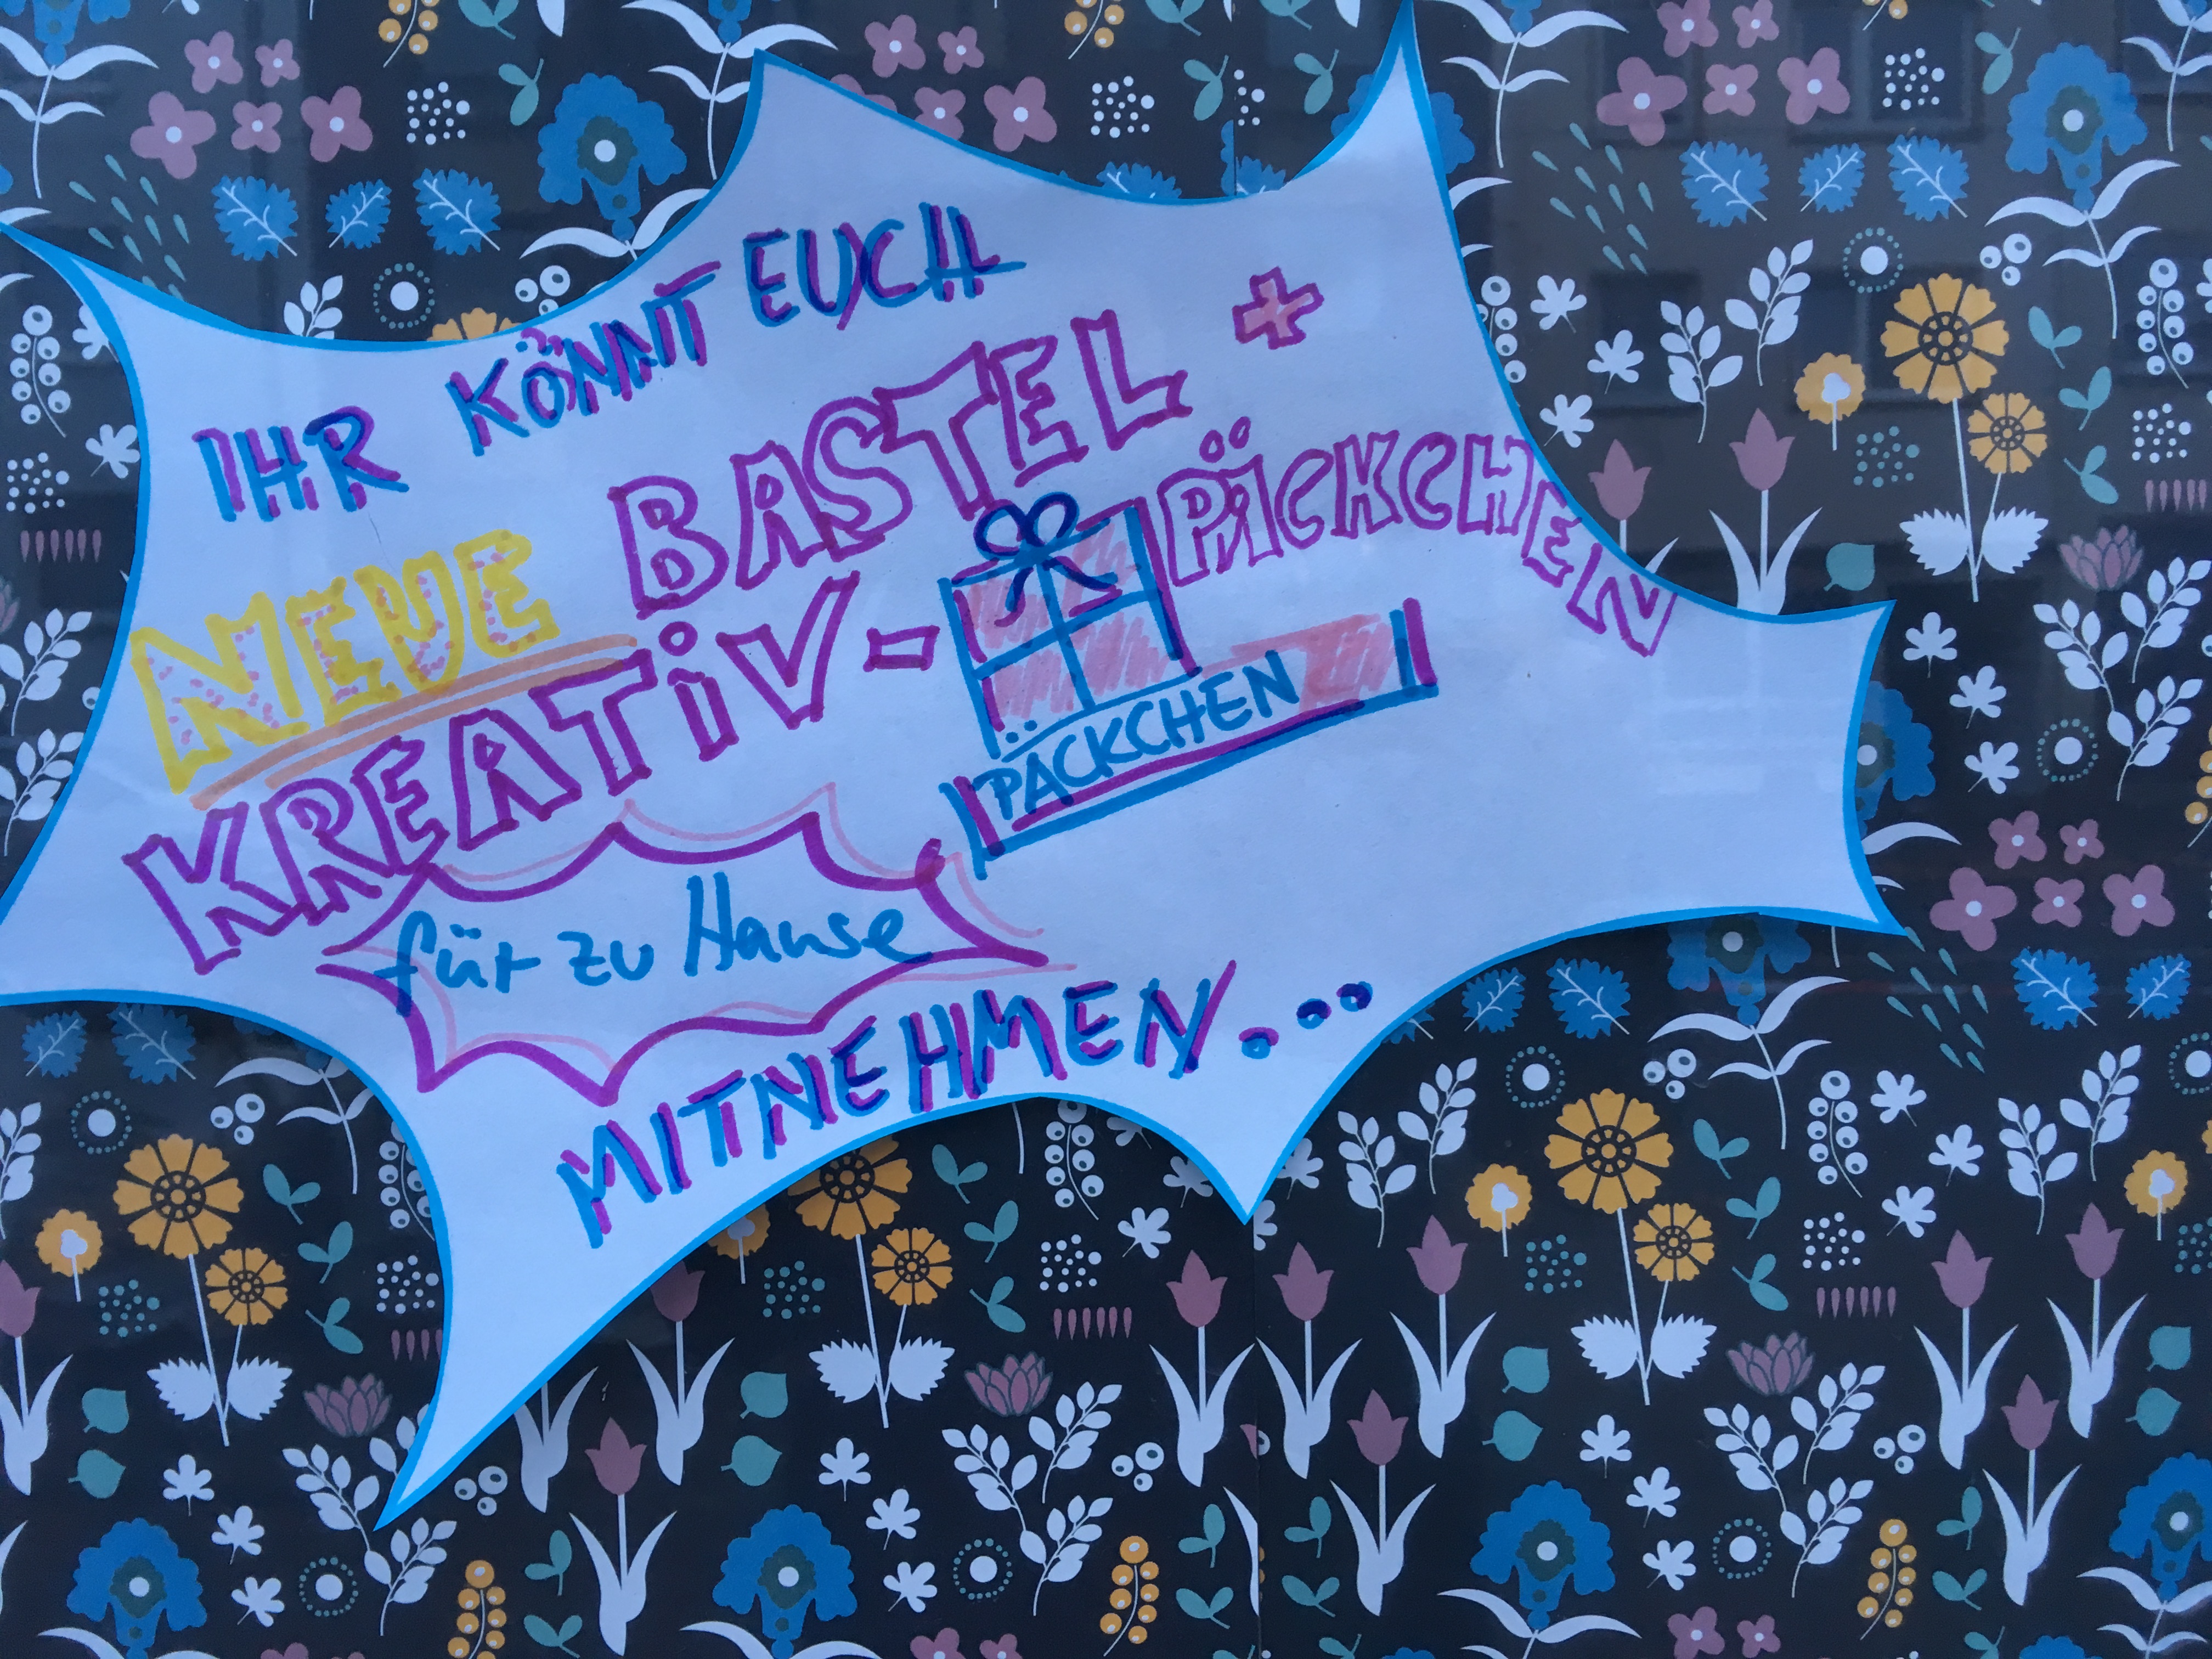 IHR KÖNNT EUCH
NEUE BASTEL +
KREATIV- PÄCKCHEN
PÄCKCHEN
für zu Hause
MITNEHMEN...